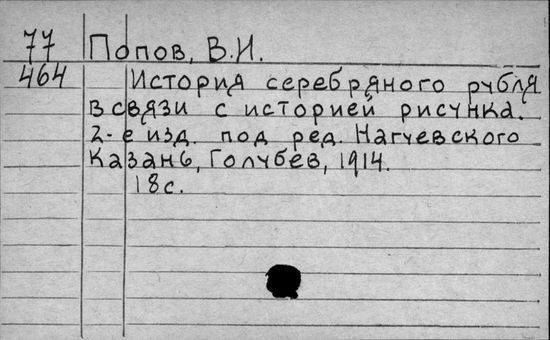 77 Попов, В.И.
464 История серебряного рубля
в связи с историей рисунка.
2-е изд. под ред. Нагуевского
Казань, Голубев, 1914.
18с.